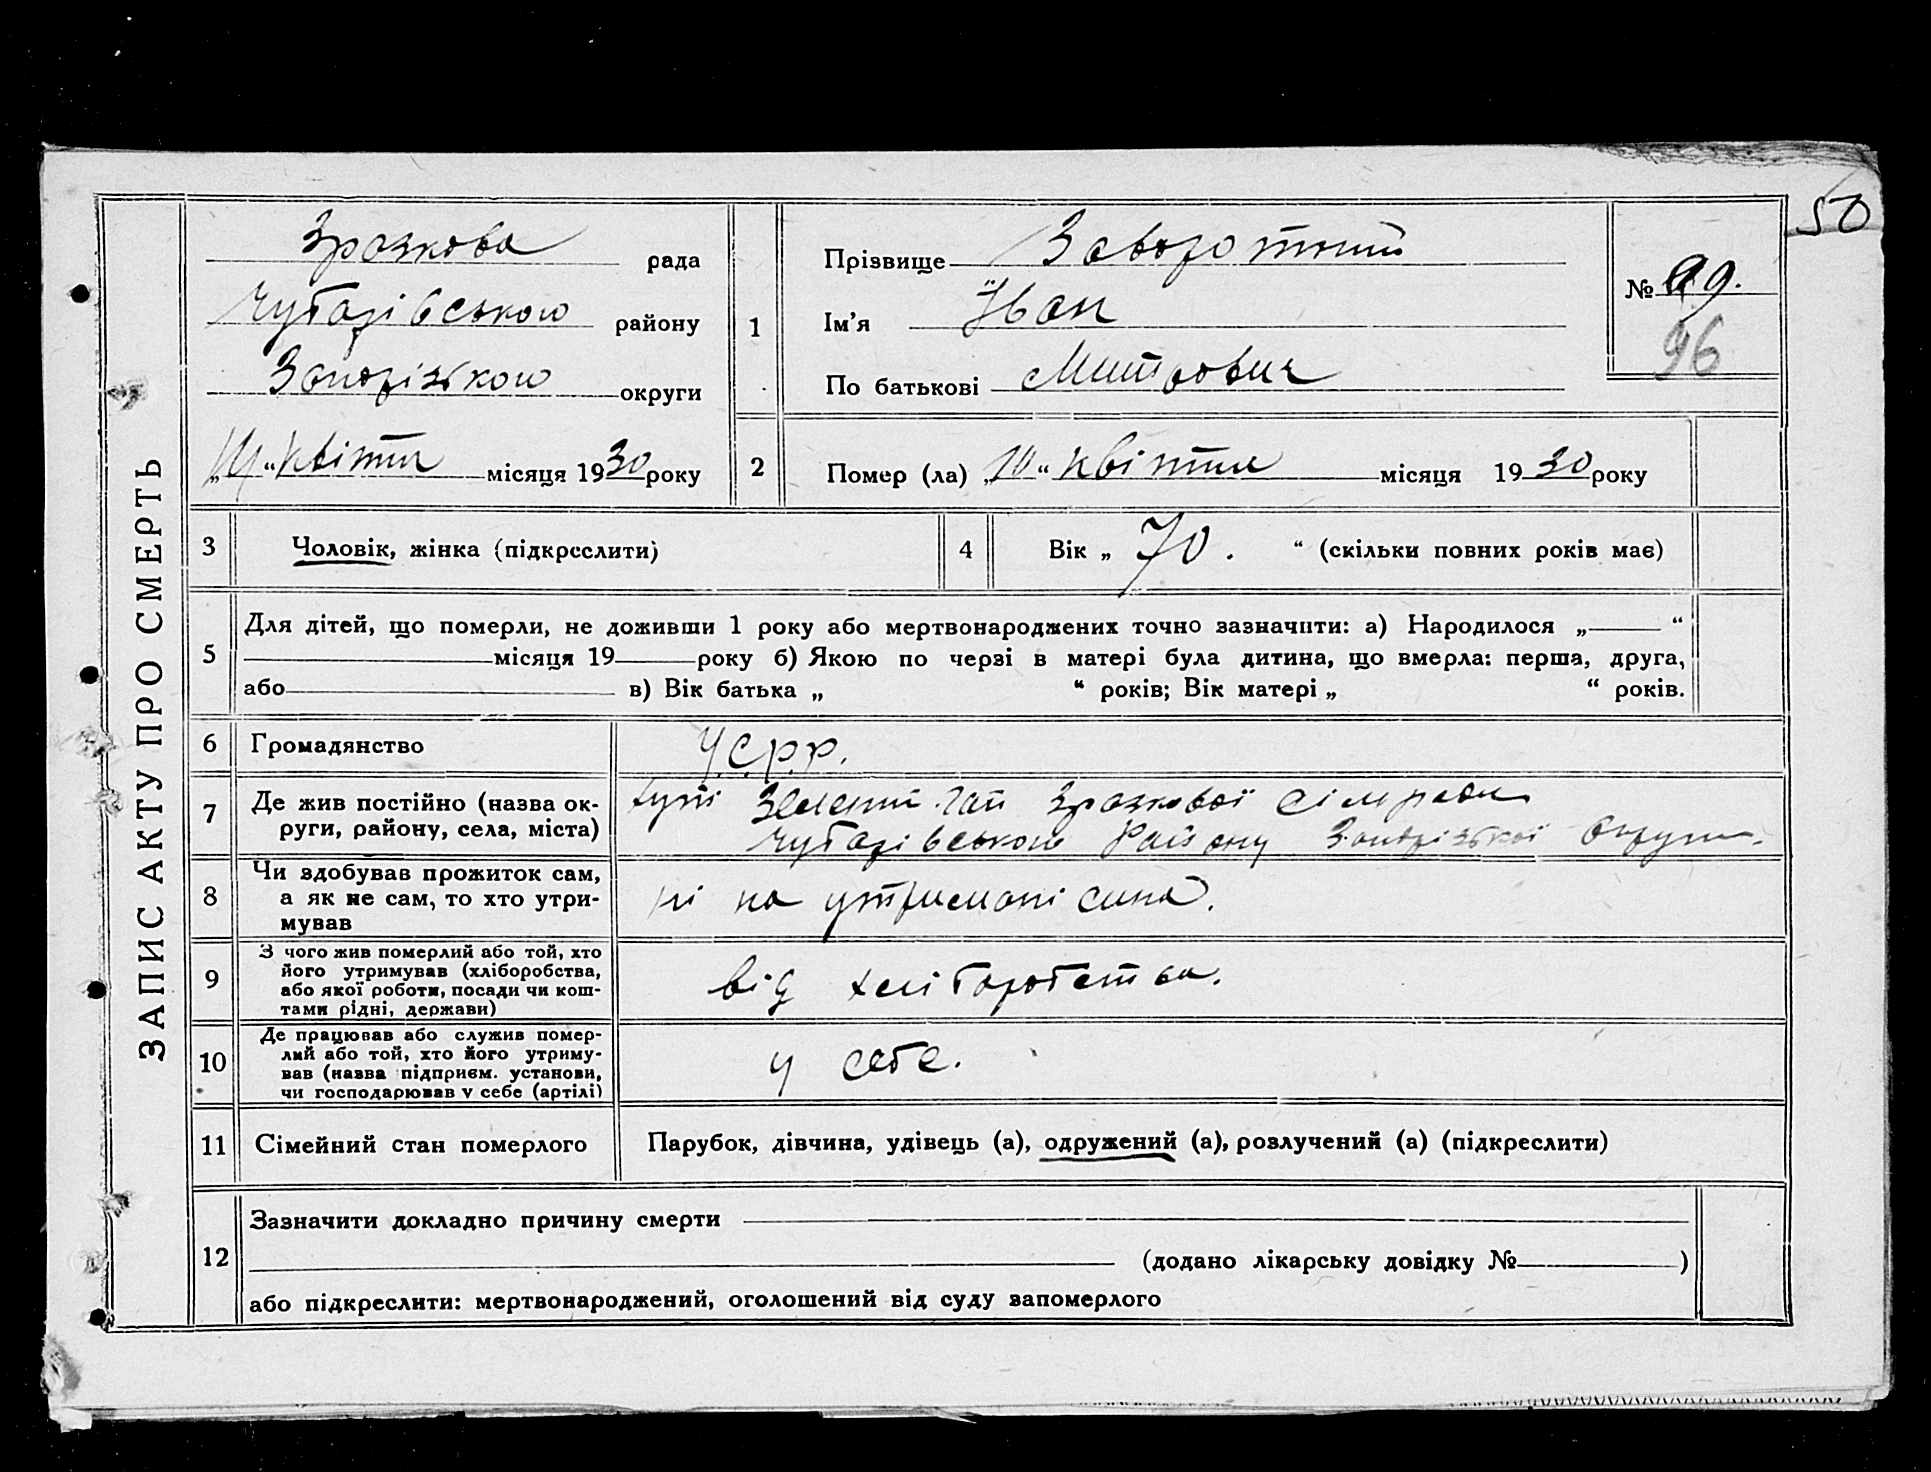 50
ЗАПИС АКТУ ПРО СМЕРТЬ
Зразкова рада
Чубарівського району
Запорізького округи
„14“ квітня місяця 1930 року
1
Прізвище Заворотний
Ім’я Іван
По батькові Митрович
№ 99.
96
2
Помер (ла) „10“ квітня місяця 1930 року
3
Чоловік, жінка (підкреслити)
4
Вік „70.“ (скільки повних років має)
5
Для дітей, що померли, не доживши 1 року або мертвонароджених точно зазначити: а) Народилося „ “
місяця 19 року б) Якою по черзі в матері була дитина, що вмерла: перша, друга,
або в) Вік батька „ “ років; Вік матері „ “ років.
6
Громадянство
У.С.Р.Р.
7
Де жив постійно (назва ок-
руги, району, села, міста)
Зелений Гай Зразкової сільради
Чубарівського Району Запорізької Округи.
8
Чи здобував прожиток сам,
а як не сам, то хто утри-
мував
ні на утримані сина.
9
З чого жив померлий або той, хто
його утримував (хліборобства,
або якої роботи, посади чи кош-
тами рідні, держави)
від хліборобства.
10
Де працював або служив помер-
лий або той, хто його утриму-
вав (назва підприєм. установи,
чи господарював у себе (артілі)
у себе.
11
Сімейний стан померлого
Парубок, дівчина, удівець (а), одружений (а), розлучений (а) (підкреслити)
12
Зазначити докладно причину смерти
(додано лікарську довідку № )
або підкреслити: мертвонароджений, оголошений від суду запомерлого